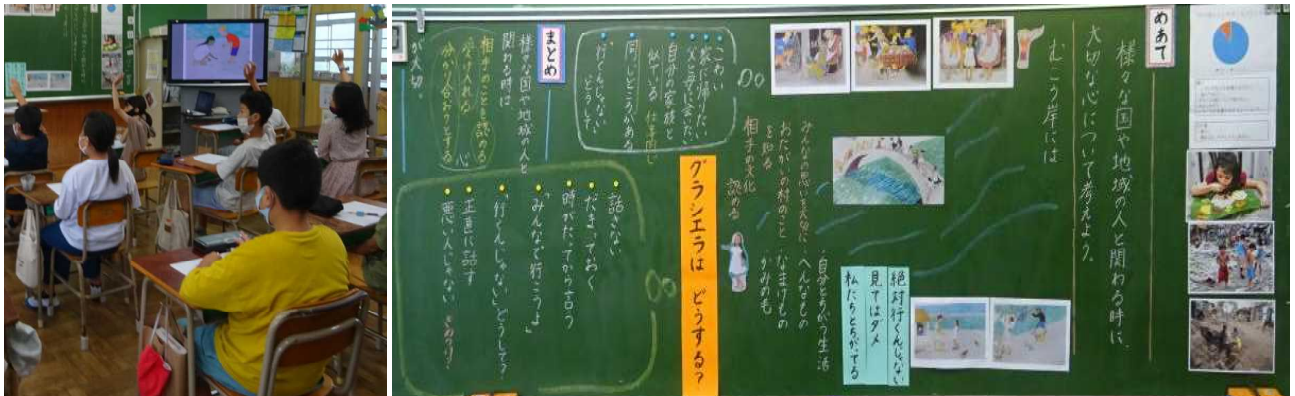 めあて
様々な国や地域の人と関わる時に、
大切な心について考えよう。
むこう岸には
絶対行くんじゃない
見てはダメ
私たちとちがってる
自分とちがう生活
へんなもの
なまけもの
みんなの思い
おたがいの村のこと
を知る
相手の文化
認める
グラシエラは どうする?
こわい
家に帰りたい
父と母に会いたい
自分の家族と
似ている 仕事同じ
同じところがある
「行くんじゃない」
どうして
話さない
だまっておく
時がたってから言う
「みんなで行こうよ」
「行くんじゃない」どうして?
正直に話す
悪い人じゃない
まとめ
様々な国や地域の人と
関わる時は
相手のことを認める
受け入れる
分かり合おうとする
心
が大切。